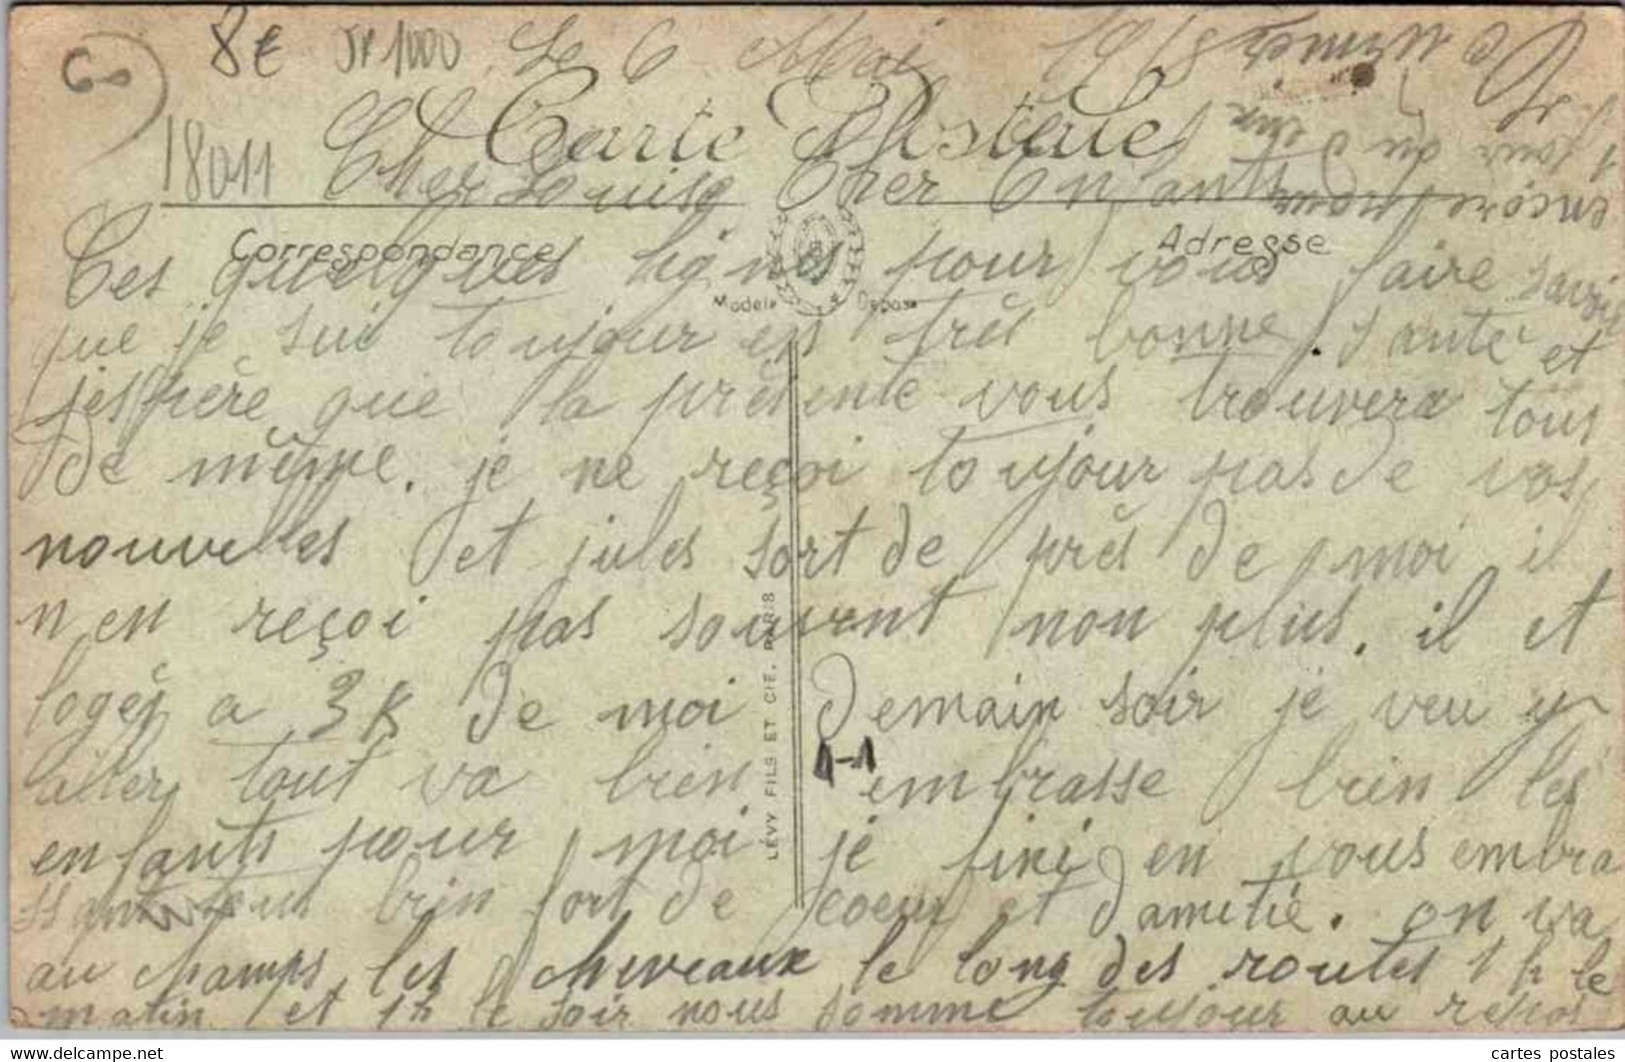 8€ JP 1000 Le 6 Mai 1918
Carte Postale
18011 Cher Louise Cher Enfants
Correspondance
Adresse
Modele Depose
Ces quelques lignes pour vous faire savoir
que je suis toujour en très bonne santé et
j'espère que la présente vous trouvera tous
de même. je ne reçoi toujour pas de vos
nouvelles et jules sort de près de moi il
n en reçoi pas souvent non plus. il et
loger a 3 K de moi demain soir je veu y
aller tout va bien 1-1 embrasse bien les
enfants pour moi je fini en vous embra
ssant tous bien fort de coeur et d'amitié. on va
au champs les cheveaux le long des routes 1 h le
matin et 1 h le soir nous somme toujour au repos
encore pour
1 jour ou deux
LÉVY FILS ET CIE. PARIS
cartes-postales-delcampe.com
cartes postales